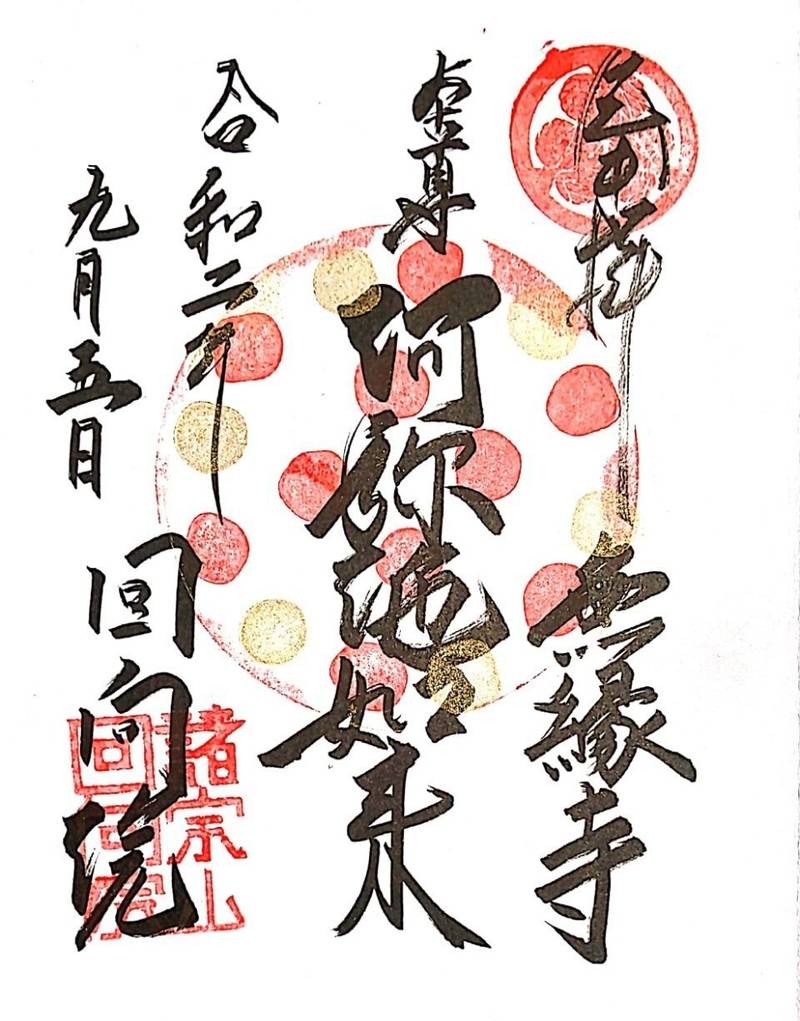 参拝
無縁寺
本尊
阿弥陀如来
令和二年
九月五日
回向院
諸宗山
回向院